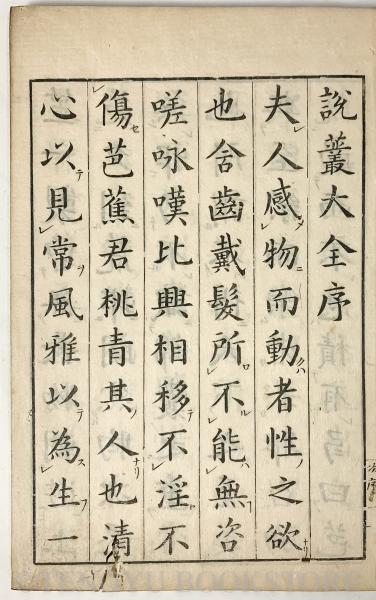 說叢大全序
夫人感物而動者性之欲
也含齒戴髮所不能無咨
嗟咏嘆比興相移不淫不
傷芭蕉君桃青其人也清
心以見常風雅以為生一